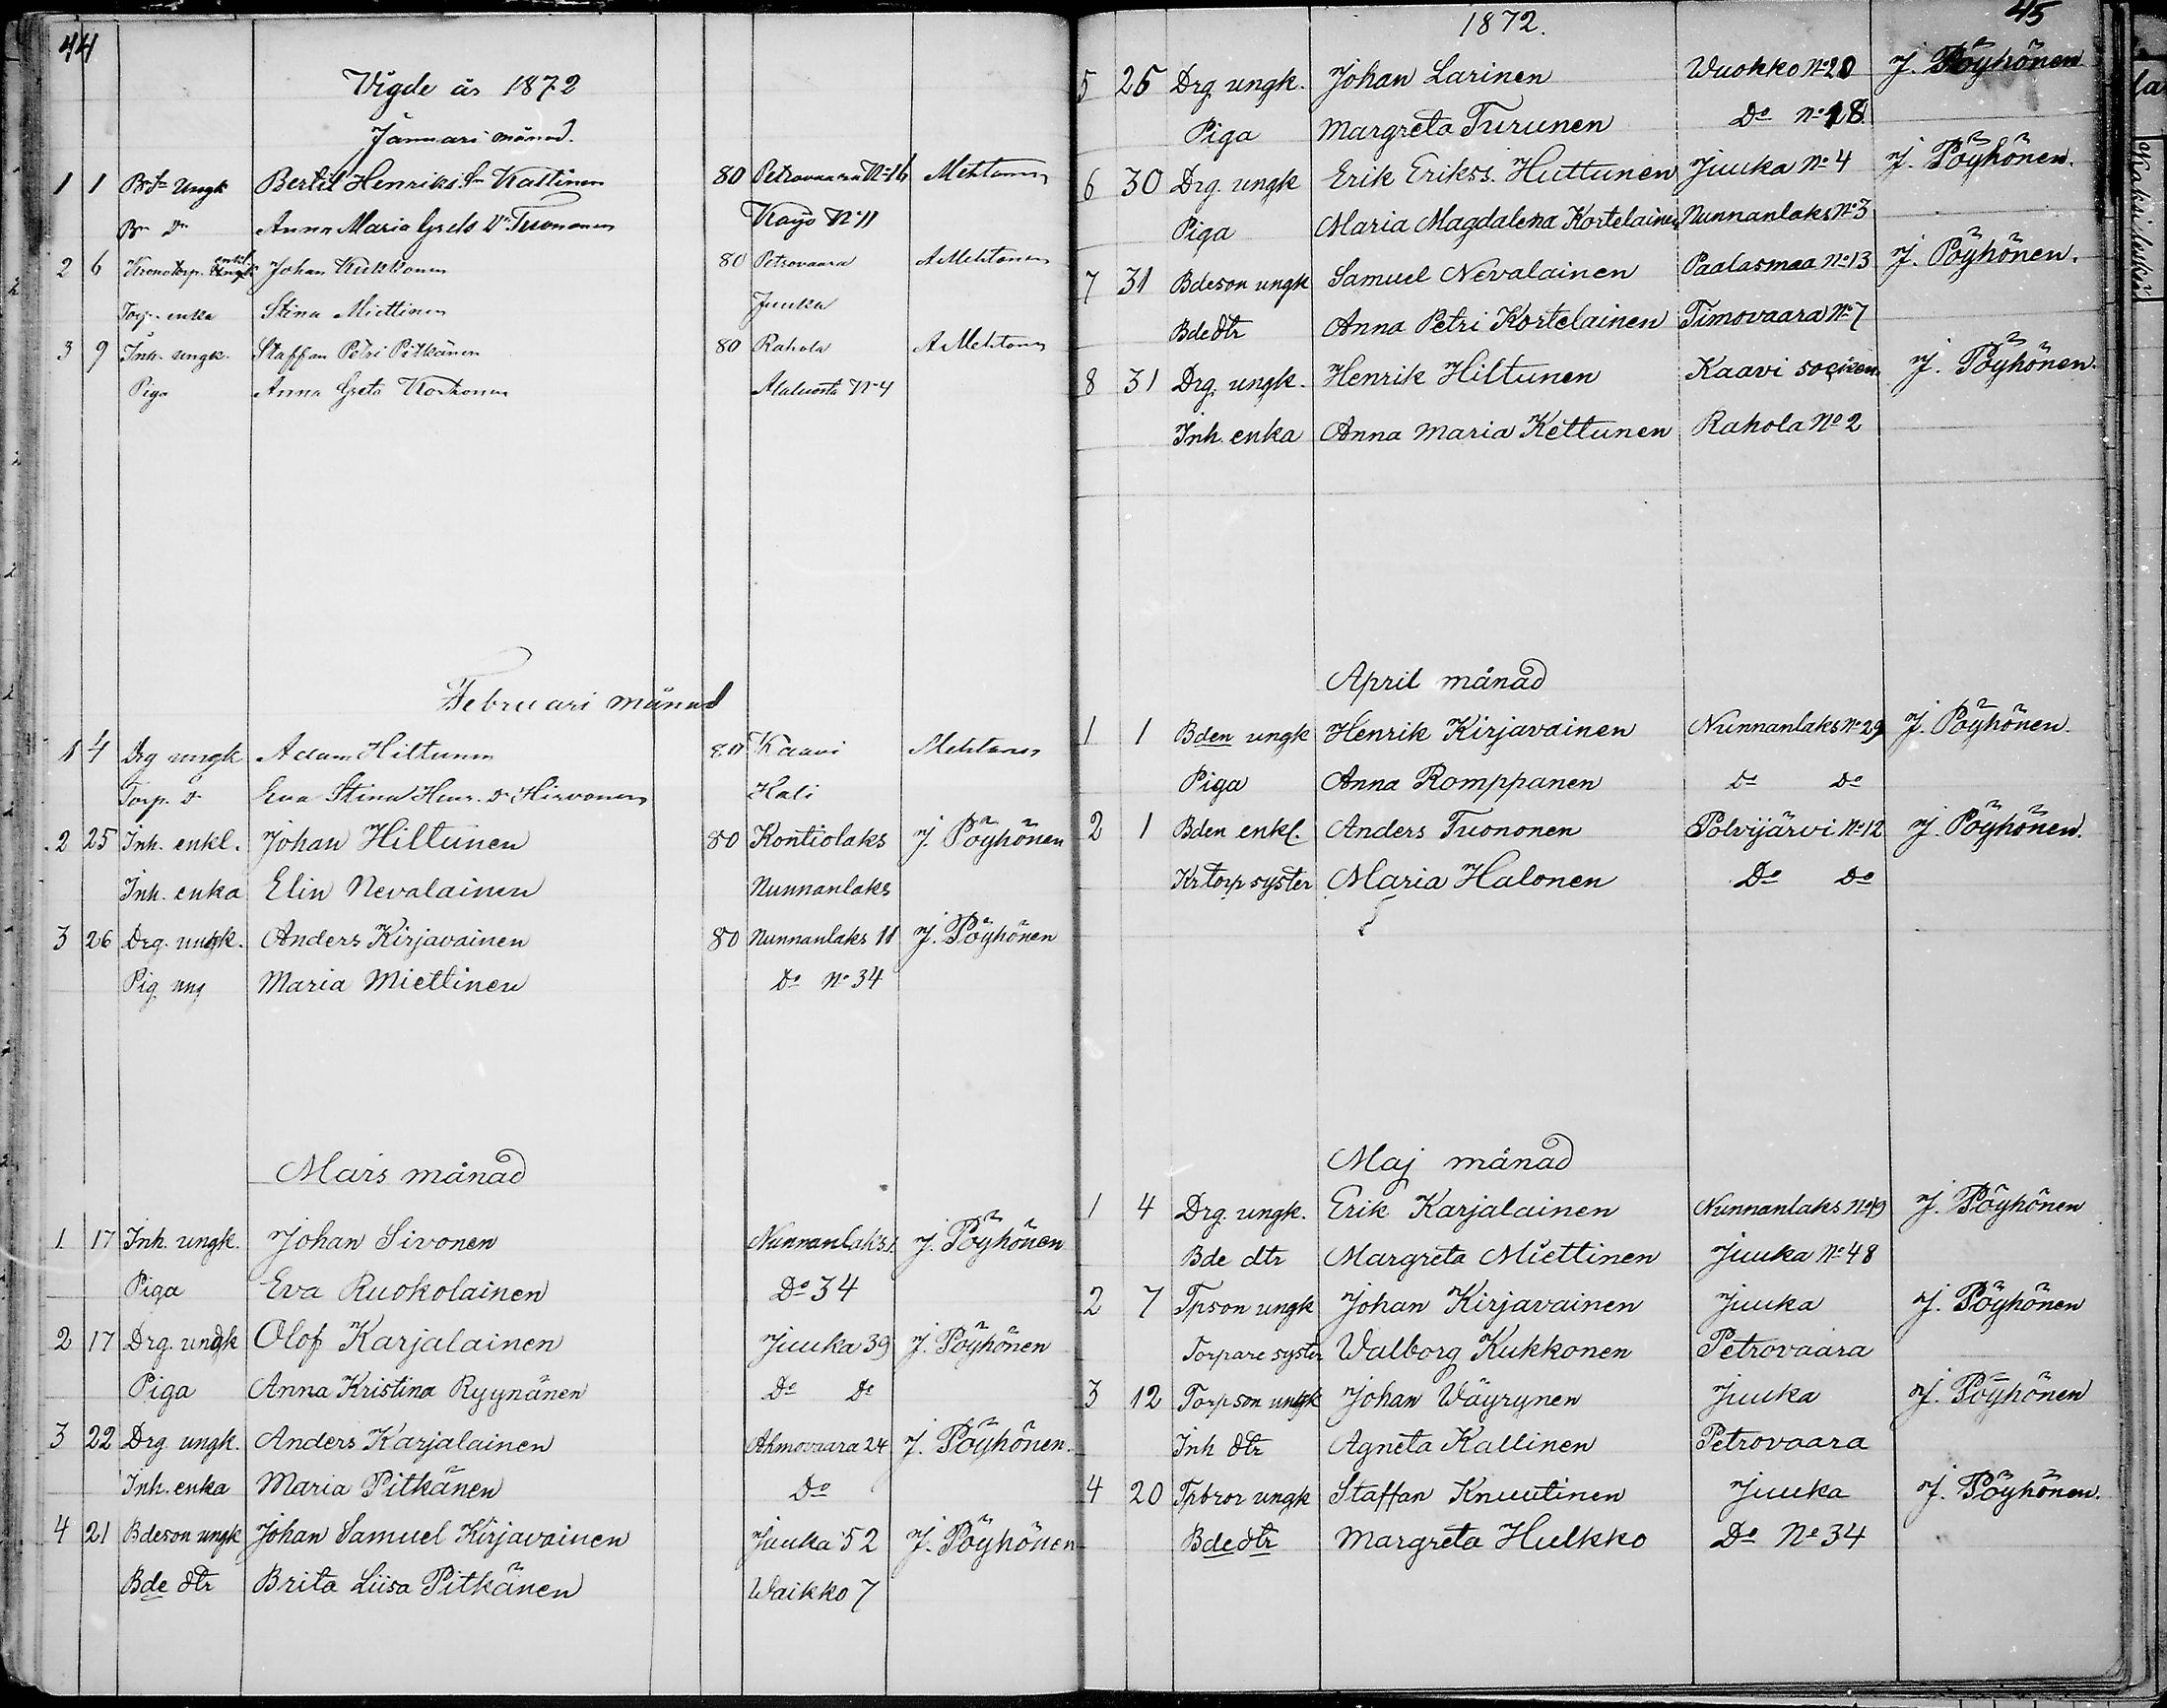 44
Vigde år 1872
Januari månad.
1 1 Bde Ungk Bertil Henriks. Sn Kattinen 80 Petrovaara No 16 Mehtonen
Bde Dr Anna Maria Grels Dr Tuononen Kajo No 11
2 6 Kronotorp. enkl. Johan Kukkonen 80 Petrovaara A Mehtonen
Torp. enka Stina Miettinen Juuka
3 9 Inh. ungk. Staffan Petri Pitkänen 80 Rahola A Mehtonen
Piga Anna Greta Korhonen Alaluosta No 4
Februari månad
1 4 Drg ungk Adam Hiltunen 80 Kaavi Mehtonen
Torp. dr Eva Stina Henr. Dr Hirvonen Koli
2 25 Inh. enkl. Johan Hiltunen 80 Kontiolaks J. Pöyhönen
Inh. enka Elin Nevalainen Nunnanlaks
3 26 Drg. ungk. Anders Kirjavainen 80 Nunnanlaks 11 J. Pöyhönen
Pig ung Maria Miettinen Do No 34
Mars månad
1. 17 Inh. ungk. Johan Sivonen Nunnanlaks 1. J. Pöyhönen
Piga Eva Ruokolainen Do 34
2 17 Drg. ungk Olof Karjalainen Juuka 39 J. Pöyhönen
Piga Anna Kristina Ryynänen Do Do
3 22 Drg. ungk. Anders Karjalainen Ahmovaara 24 J. Pöyhönen.
Inh. enka Maria Pitkänen Do
4 21 Bdeson ungk Johan Samuel Kirjavainen Juuka 52 J. Pöyhönen
Bde dtr Brita Liisa Pitkänen Waikko 7
45
1872.
5 26 Drg. ungk. Johan Larinen Wuokko No 20 J. Pöyhönen
Piga Margreta Turunen Do No 18.
6 30 Drg. ungk Erik Erikss. Huttunen Juuka No 4 J. Pöyhönen.
Piga Maria Magdalena Kortelainen Nunnanlaks No 3
7 31 Bdeson ungk Samuel Nevalainen Paalasmaa No 13 J. Pöyhönen.
Bdedtr Anna Petri Kortelainen Timovaara No 7
8 31 Drg. ungk. Henrik Hiltunen Kaavi socken. J. Pöyhönen.
Inh. enka Anna Maria Kettunen Rahola No 2
April månad
1 1 Bden ungk Henrik Kirjavainen Nunnanlaks No 29 J. Pöyhönen.
Piga Anna Romppanen Do Do
2 1 Bden enkl. Anders Tuononen Polvijärvi No 12 J. Pöyhönen.
Kr torp syster Maria Halonen Do Do
Maj månad
1 4 Drg. ungk. Erik Karjalainen Nunnanlaks No 19 J. Pöyhönen
Bde dtr Margreta Miettinen Juuka No 48
2 7 Tpson ungk Johan Kirjavainen Juuka J. Pöyhönen
Torpare syster Walborg Kukkonen Petrovaara
3 12 Torpson ungk Johan Wäyrynen Juuka J. Pöyhönen
Inh dtr Agneta Kallinen Petrovaara
4 20 Tpbror ungk Staffan Knuutinen Juuka J. Pöyhönen.
Bdedtr Margreta Hulkko Do No 34